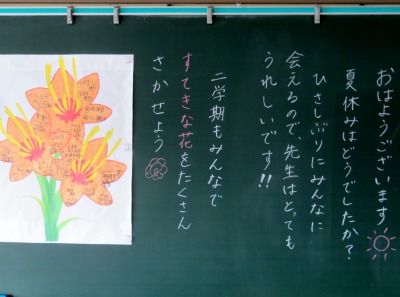 おはようございます
夏休みはどうでしたか？
ひさしぶりにみんなに
会えるので、先生はとっても
うれしいです!!
二学期もみんなで
すてきな花をたくさん
さかせよう